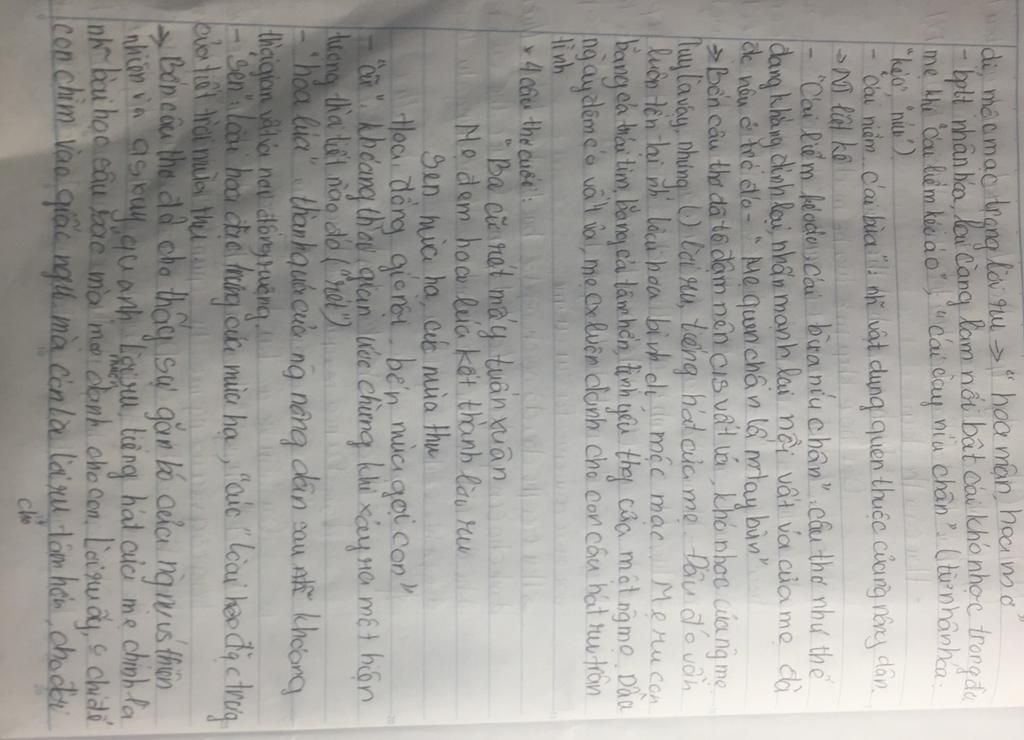 dị, mộc mạc trong lời ru → "hoa mận, hoa mơ"
- bptt nhân hóa, lại càng làm nổi bật cái khó nhọc trong đời
mẹ khi "cái liềm kéo áo", "cái cày níu chân" (từ nhân hóa:
"kéo" "níu")
- "Cái liềm, cái bừa": nhữ vật dụng quen thuộc của ng nông dân.
→ NT liệt kê
- "Cái liềm kéo áo, cái bừa níu chân". câu thơ như thể
đang khẳng định lại, nhấn mạnh lại nỗi vất vả của mẹ đã
đc nêu ở trc đó - "Mẹ quen chân lấm tay bùn"
⇒ Bốn câu thơ đã tô đậm nên c/s vất vả, khó nhọc của ng mẹ
tuy là vậy, nhưng () lời ru, tiếng hát của mẹ. Đâu đó vẫn
luôn tồn tại nhữ loài hoa bình dị mộc mạc. Mẹ ru con
bằng cả trái tim, bằng cả tâm hồn, tình yêu thg của một ng mẹ. Dẫu
ngày đêm có vất vả, mẹ cx luôn dành cho con câu hát ru trân
tình
* 4 câu thơ cuối:
"Ba cữ rét mấy tuần xuân
Mẹ đem hoa lúa kết thành lời ru
Sen mùa hạ, cúc mùa thu
Hoa đồng gió nội, bến núi gọi con"
- "cữ": khoảng thời gian ước chừng khi xảy ra một hiện
tượng thời tiết nào đó ("rét")
- "hoa lúa": thành quả của ng nông dân sau khoảng
thời gian vất vả nơi đồng ruộng.
- "Sen": loài hoa đặc trưng của mùa hạ, "cúc" loài hoa đặc trưng
của tiết trời mùa thu
⇒ Bốn câu thơ đã cho thấy sự gắn bó của ng vs thiên
nhiên và a s xung quanh. Lời mẹ ru, tiếng hát của mẹ chính là
nhữ bài học sâu sắc mà mẹ dành cho con. Lời ru ấy, o chỉ để
con chìm vào giấc ngủ, mà còn là lời ru tâm hồn, cho đời
cho